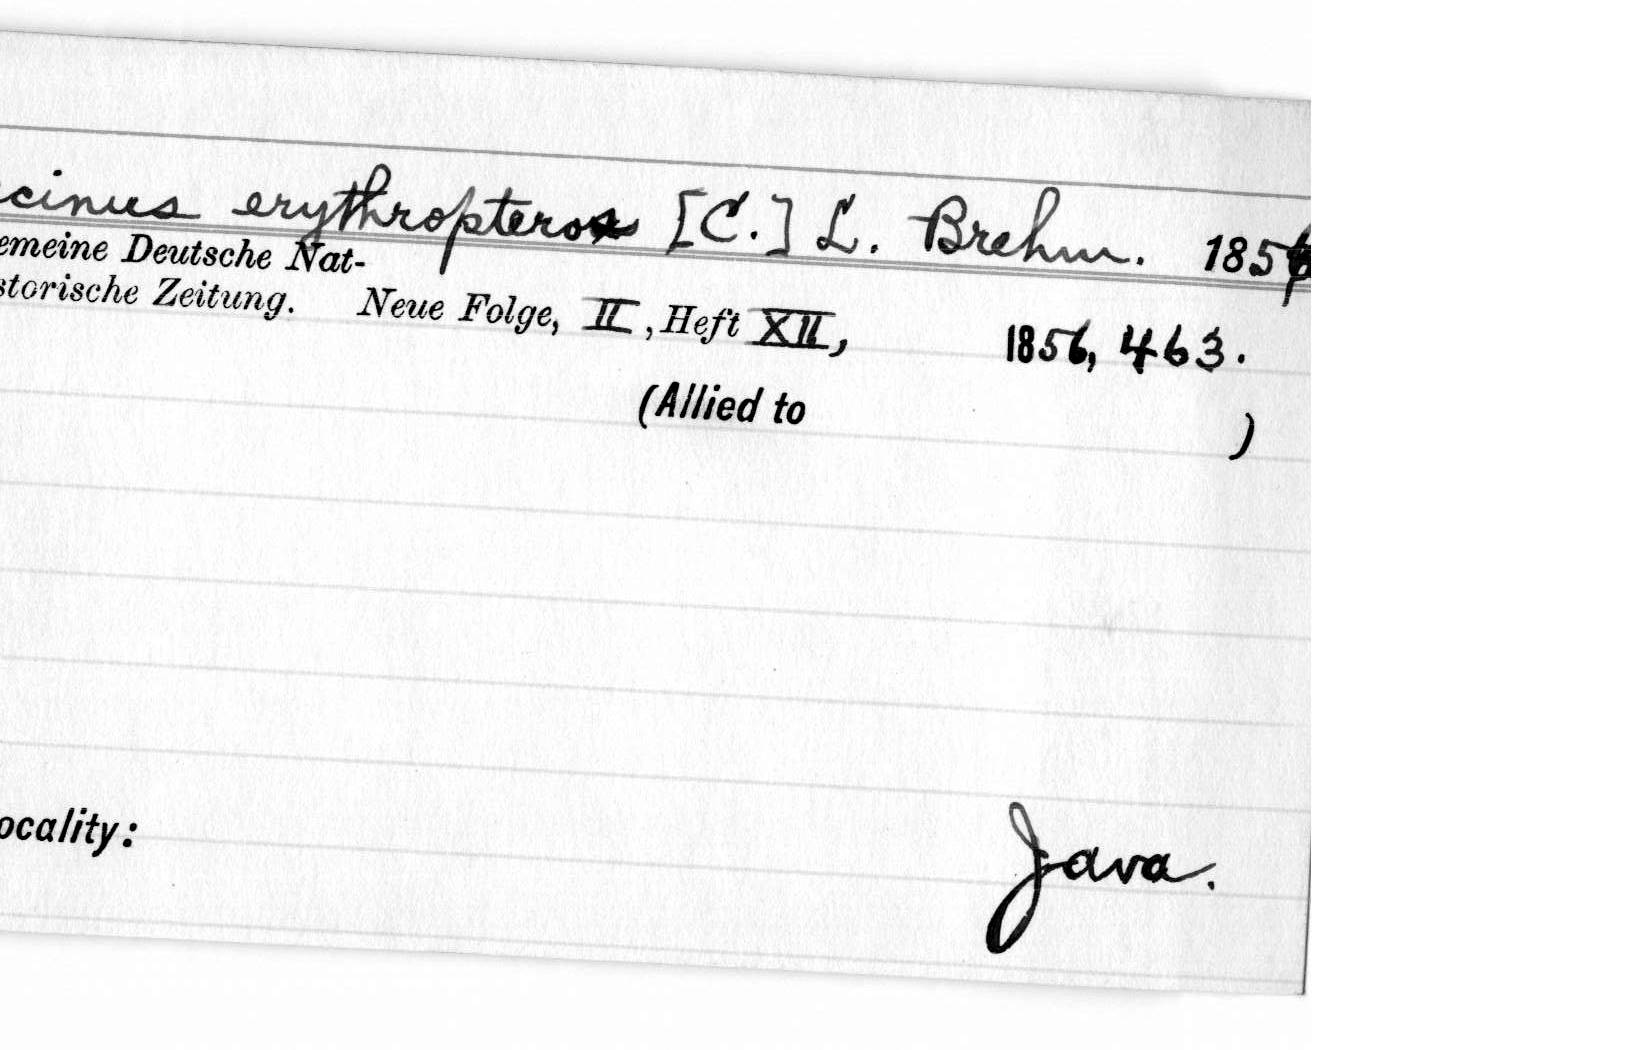 cinus erythropteros [C.] L. Brehm. 1856
emeine Deutsche Nat-
storische Zeitung. Neue Folge, II, Heft XII, 1856, 463.
(Allied to )
ocality: Java.